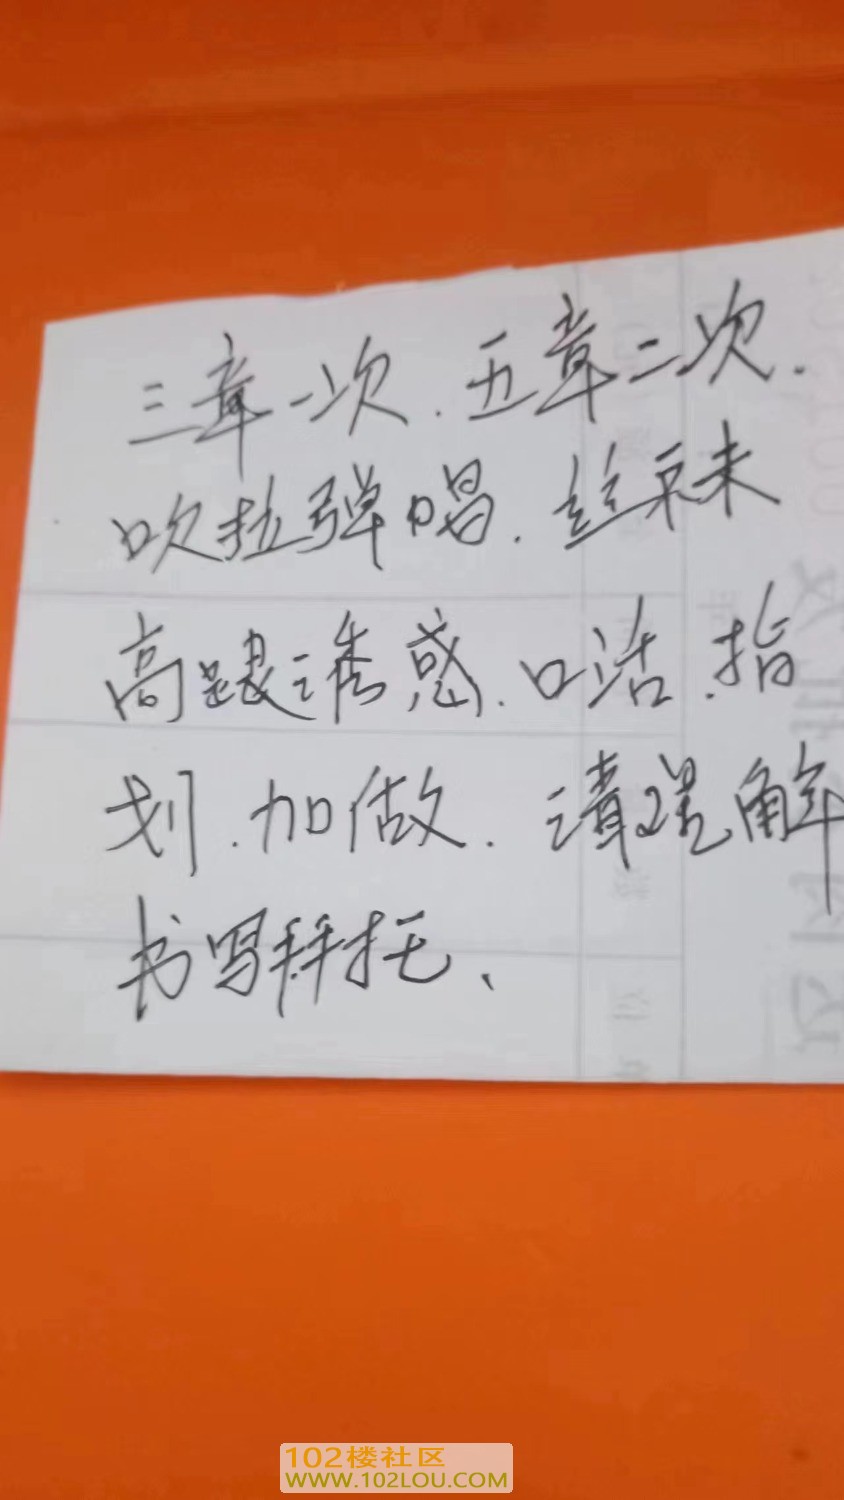 三章一次.五章二次.
吹拉弹唱.丝末
高跟诱惑.口活.指
划.加做.请理解
书写拜托、
102楼社区
WWW.102LOU.COM